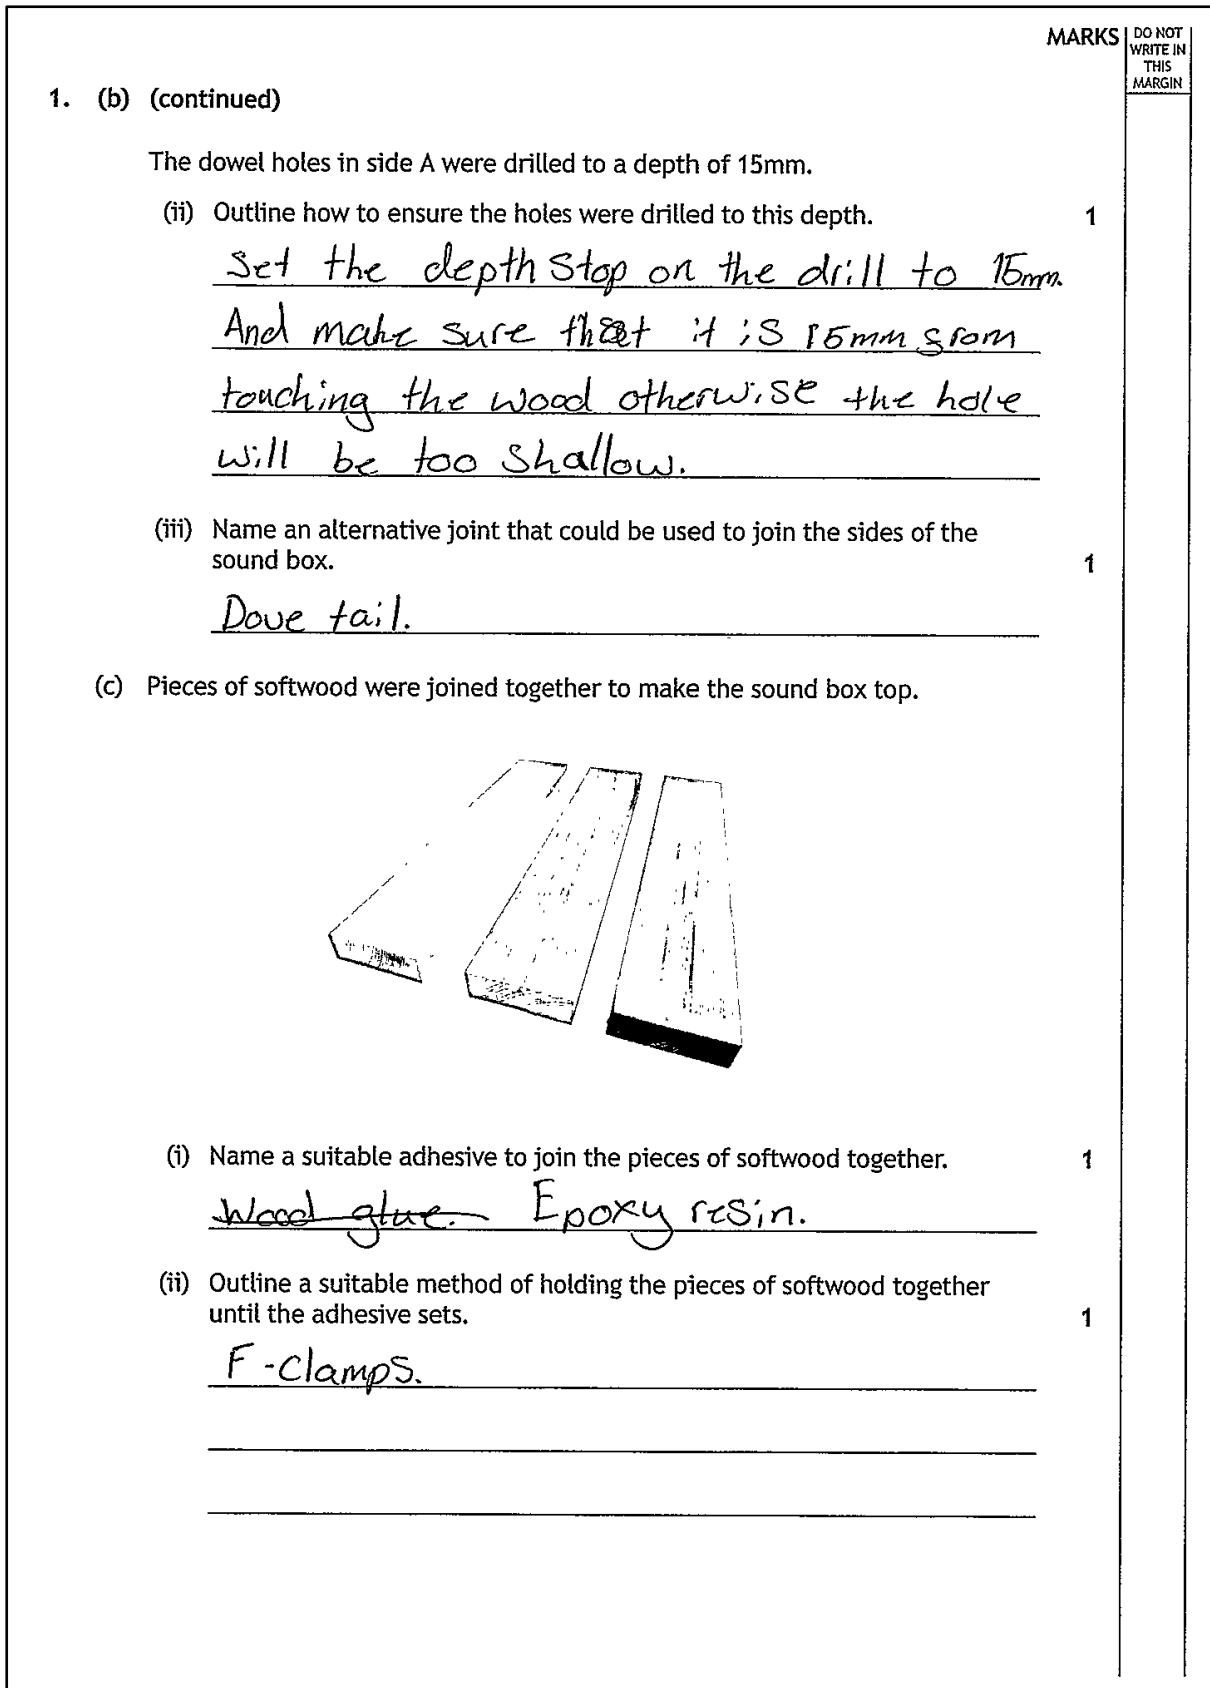 MARKS
DO NOT
WRITE IN
THIS
MARGIN
1. (b) (continued)
The dowel holes in side A were drilled to a depth of 15mm.
(ii) Outline how to ensure the holes were drilled to this depth. 1
Set the depth stop on the drill to 15mm.
And make sure that it is 15mm from
touching the wood otherwise the hole
will be too shallow.
(iii) Name an alternative joint that could be used to join the sides of the
sound box. 1
Dove tail.
(c) Pieces of softwood were joined together to make the sound box top.
(i) Name a suitable adhesive to join the pieces of softwood together. 1
Wood glue. Epoxy resin.
(ii) Outline a suitable method of holding the pieces of softwood together
until the adhesive sets. 1
F-clamps.